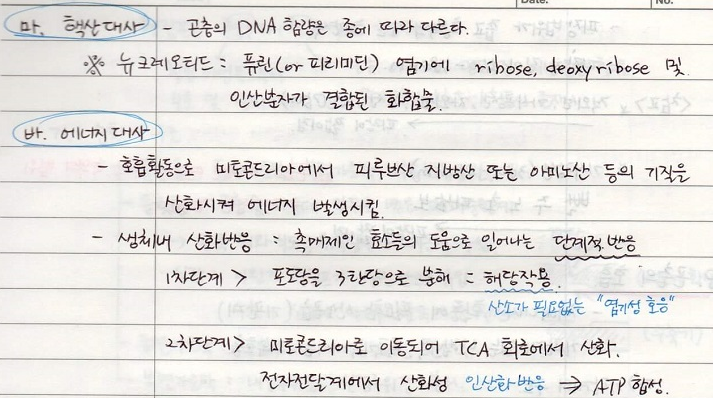 Date. No.
마. 핵산대사 - 곤충의 DNA 함량은 종에 따라 다르다.
※ 뉴크레오티드 = 퓨린(or 피리미딘) 염기에 ribose, deoxyribose 및
인산분자가 결합된 화합물.
바. 에너지대사
- 호흡활동으로 미토콘드리아에서 피루브산 지방산 또는 아미노산 등의 기질을
산화시켜 에너지 발생시킴.
- 생체내 산화반응 : 촉매제인 효소들의 도움으로 일어나는 단계적 반응
1차단계 > 포도당을 3탄당으로 분해 = 해당작용.
산소가 필요없는 "혐기성 호흡"
2차단계 > 미토콘드리아로 이동되어 TCA 회로에서 산화.
전자전달계에서 산화성 인산화반응 ⇒ ATP 합성.